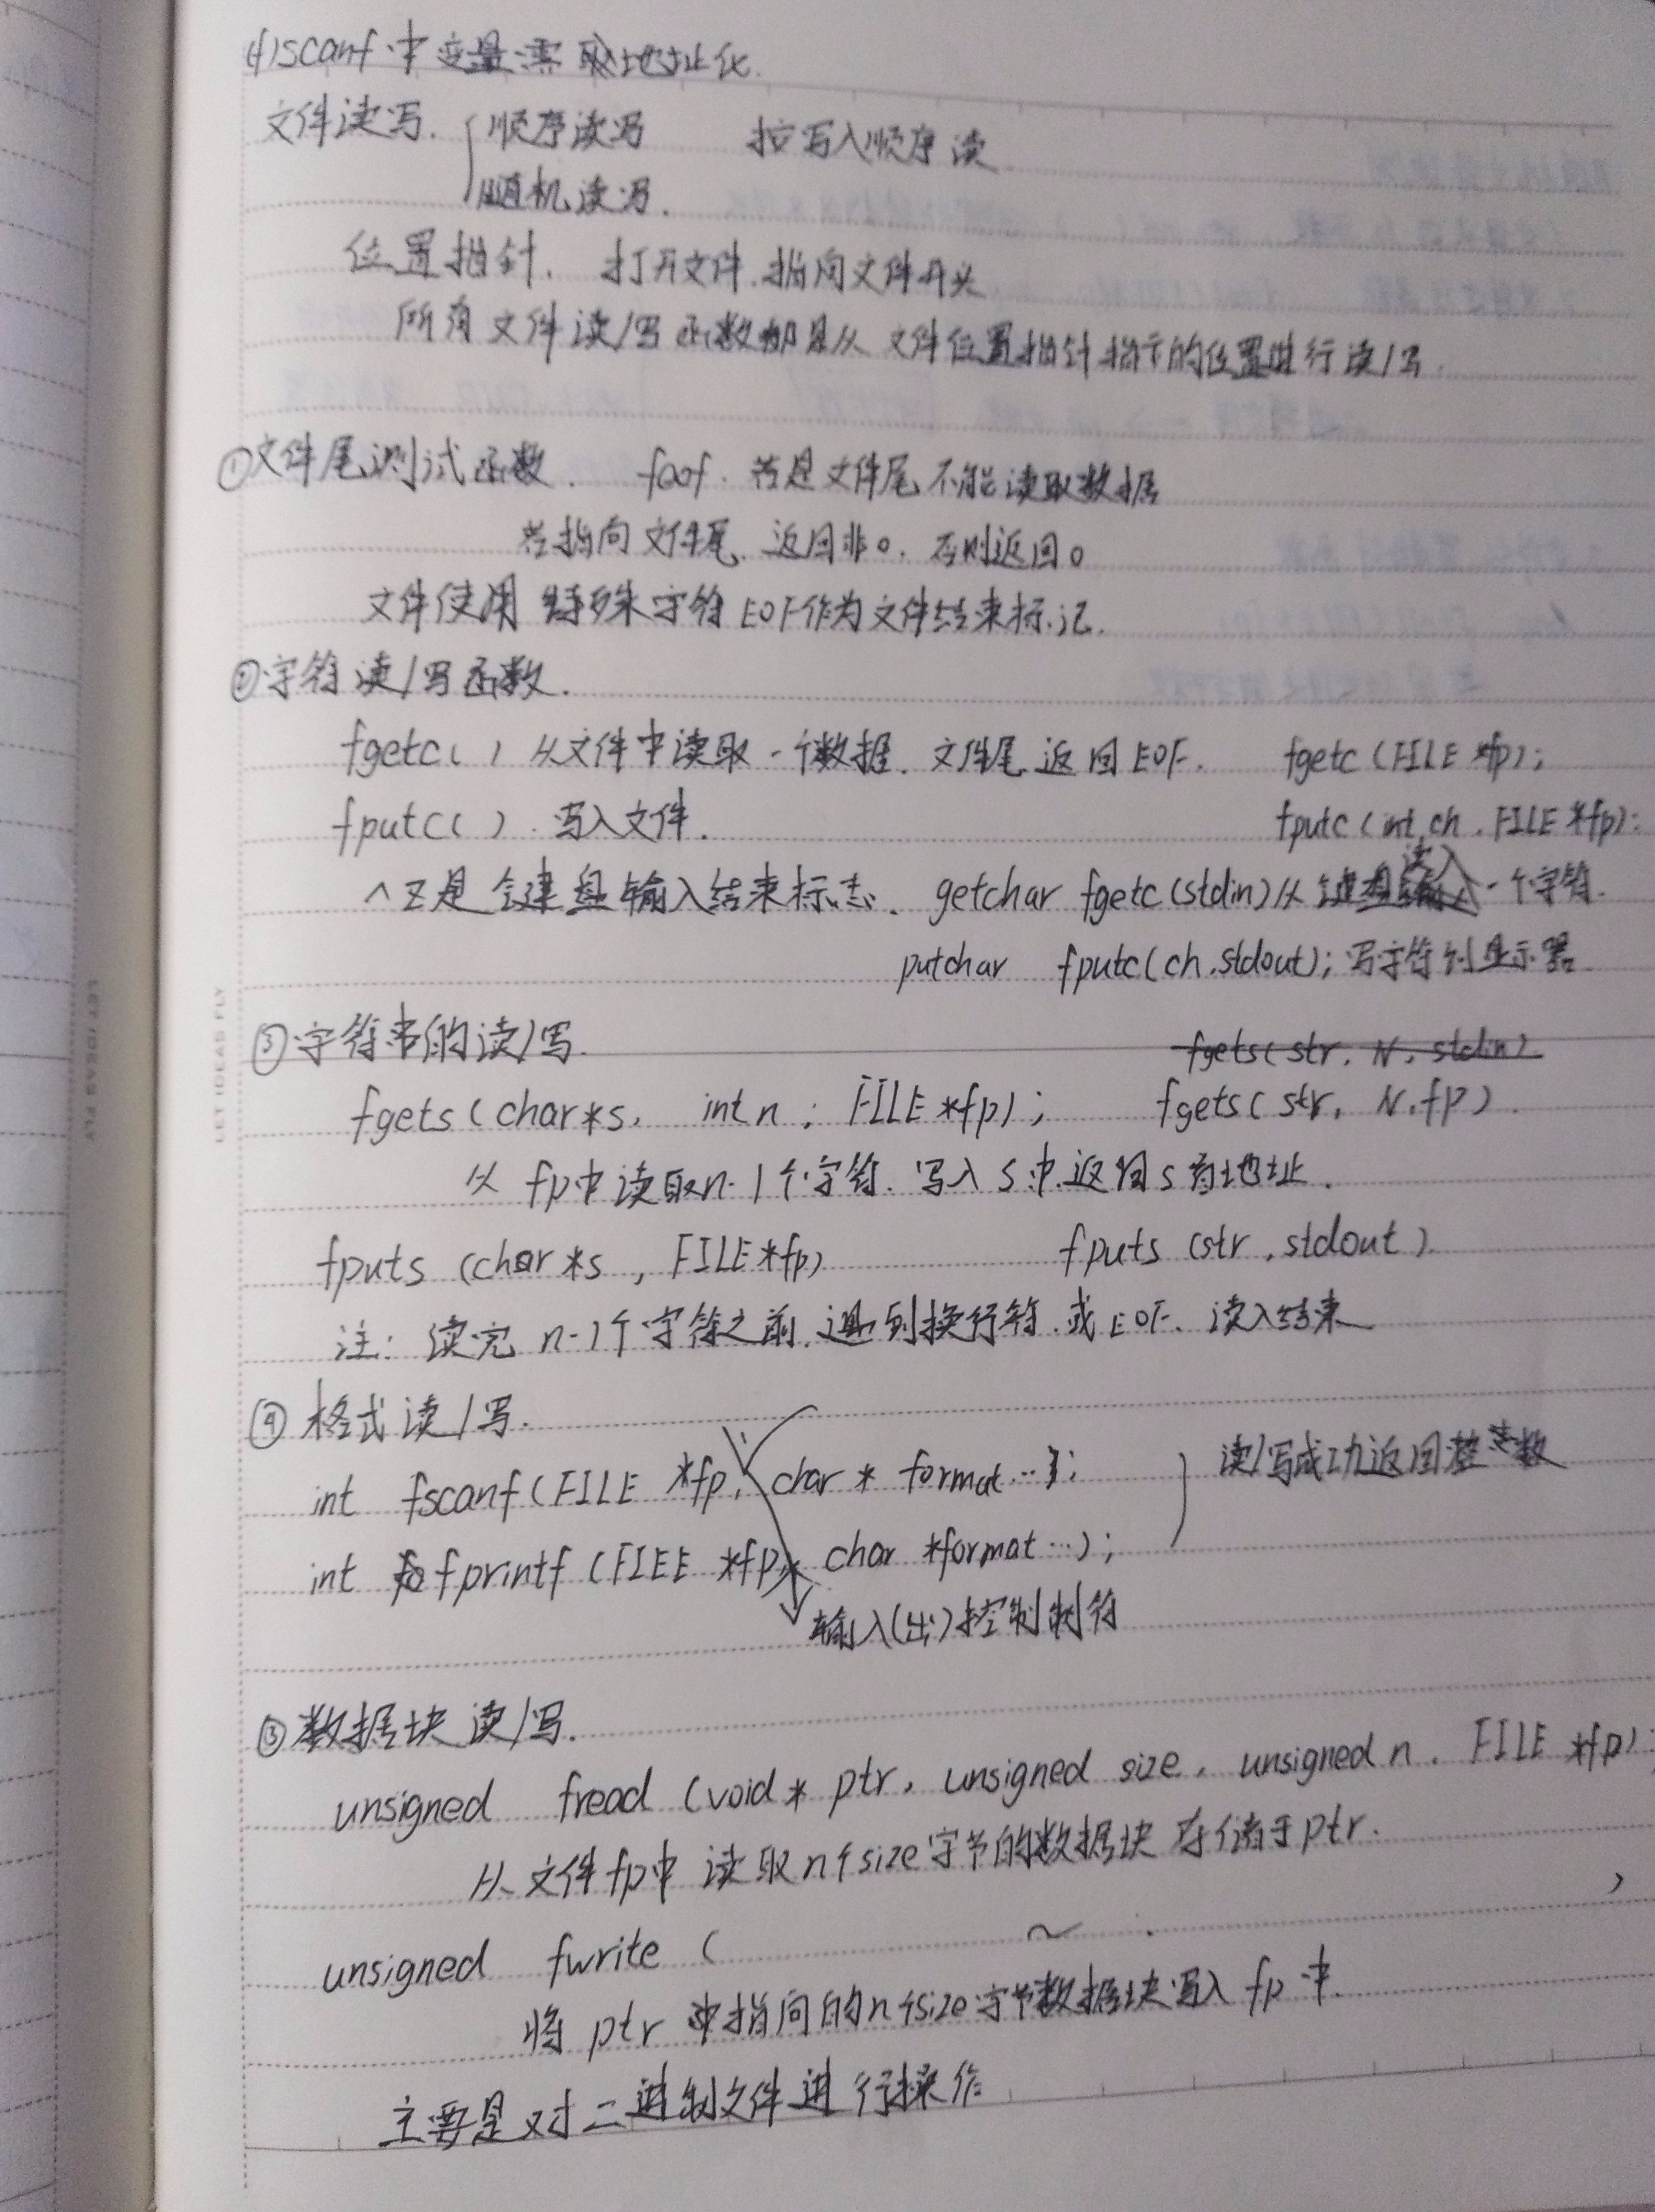 (f)scanf中变量需取地址化.
文件读写. 顺序读写 按写入顺序读
随机读写.
位置指针. 打开文件.指向文件开头
所有文件读/写函数都是从文件位置指针指示的位置进行读/写.
①文件尾测试函数. feof.若是文件尾不能读取数据
若指向文件尾.返回非0.否则返回0
文件使用特殊字符EOF作为文件结束标记.
②字符读/写函数.
fgetc( ) 从文件中读取一个数据.文件尾返回EOF. fgetc(FILE *fp);
fputc( ) 写入文件. fputc(int ch. FILE *fp):
^Z是键盘输入结束标志. getchar fgetc(stdin)从键盘读入一个字符.
putchar fputc(ch.stdout);写字符到显示器
③字符串的读/写. fgets(str, N, stdin)
fgets(char*s, int n; FILE*fp); fgets(str, N.fp).
从fp中读取n-1个字符.写入s中.返回s的地址.
fputs (char*s , FILE*fp) fputs (str,stdout)
注: 读完n-1个字符之前.遇到换行符.或EOF、读入结束
④格式读/写.
int fscanf(FILE *fp, char * format…); 读/写成功返回整数
int fprintf (FIEE *fp, char *format…);
输入(出)控制制符
⑤数据块读/写.
unsigned fread (void* ptr, unsigned size, unsigned n. FILE *fp);
从文件fp中读取n个size字节的数据块存储于ptr.
unsigned fwrite ( ~ )
将ptr中指向的n个size字节数据块写入fp中.
主要是对二进制文件进行操作
LET IDEAS FLY
LET IDEAS FLY